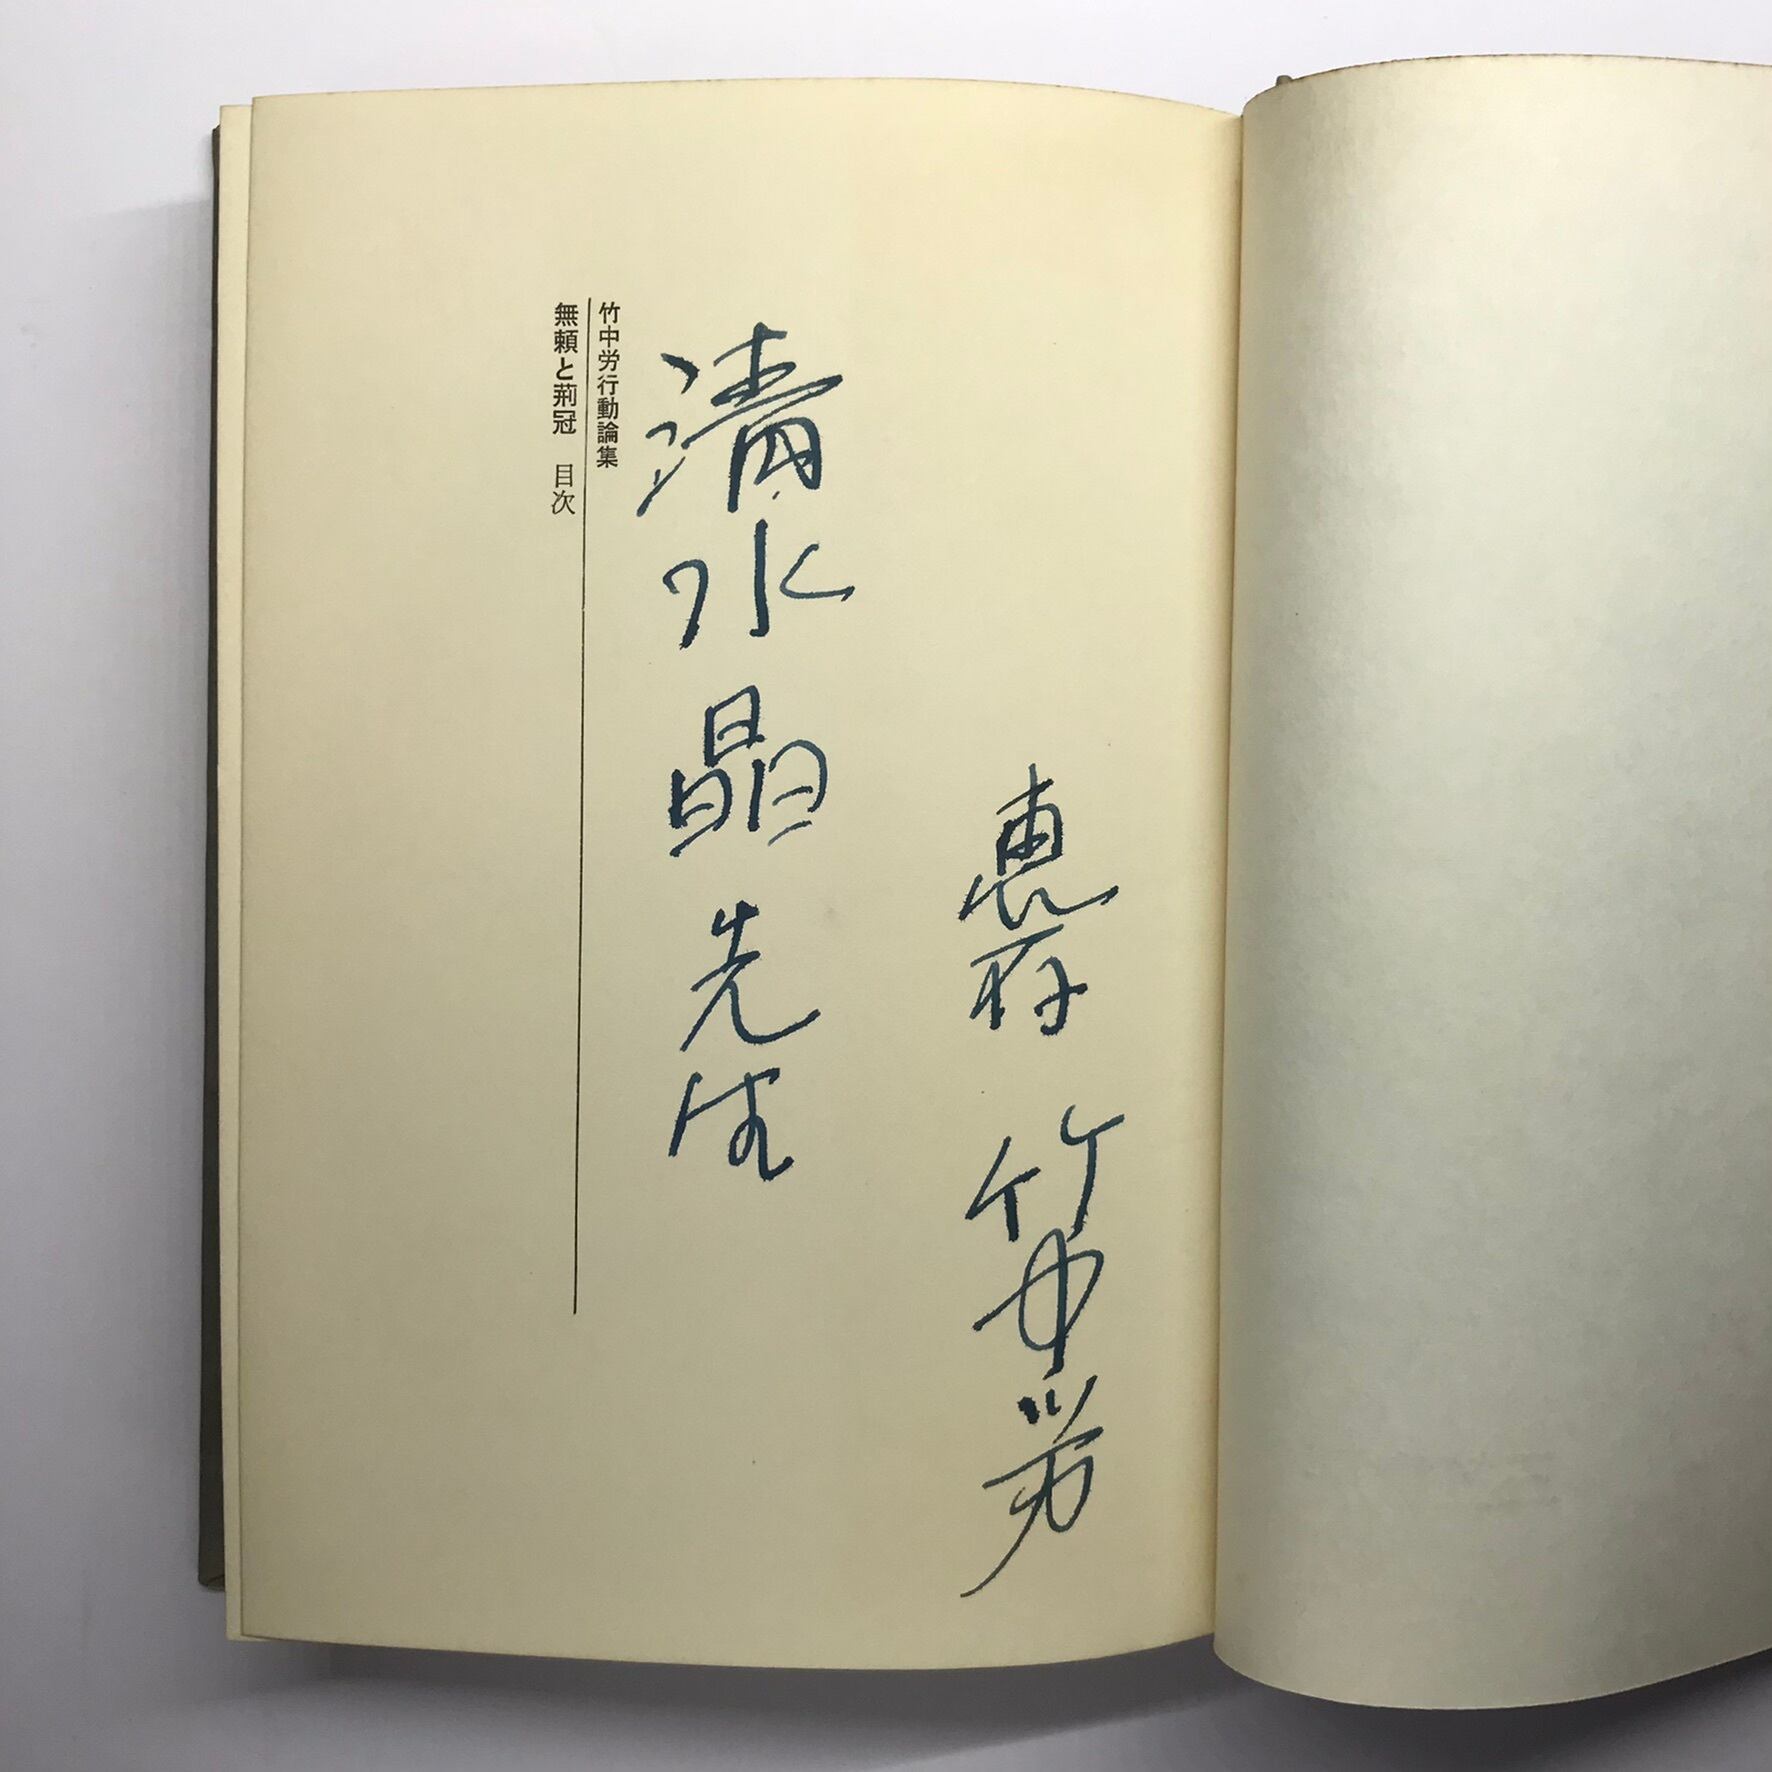 恵存 竹中労
清水晶先生
竹中労行動論集
無頼と荊冠 目次